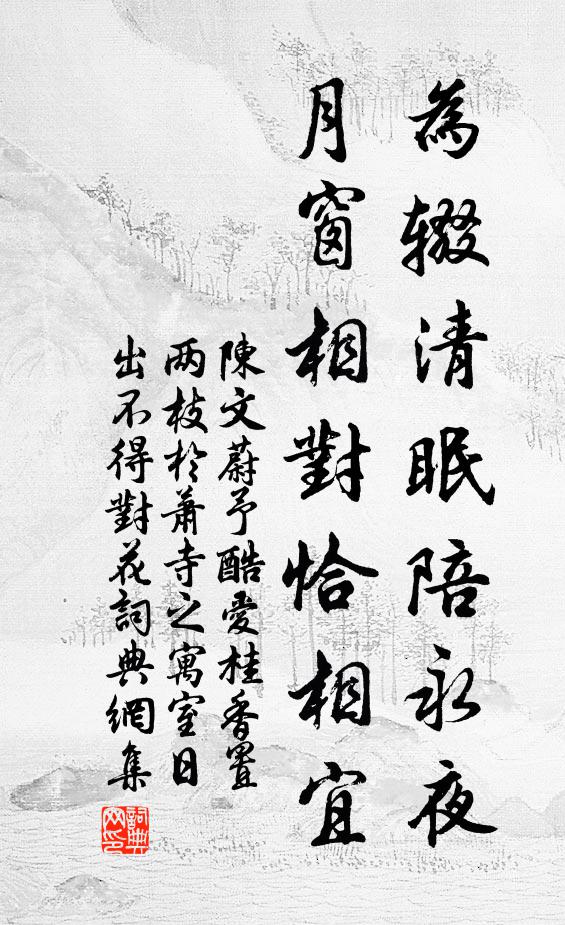 為辍清眠陪永夜
月窗相對恰相宜
陳文蔚予酷愛桂香置
两枝於蕭寺之寓室日
出不得對花詞典網集
詞典
网印